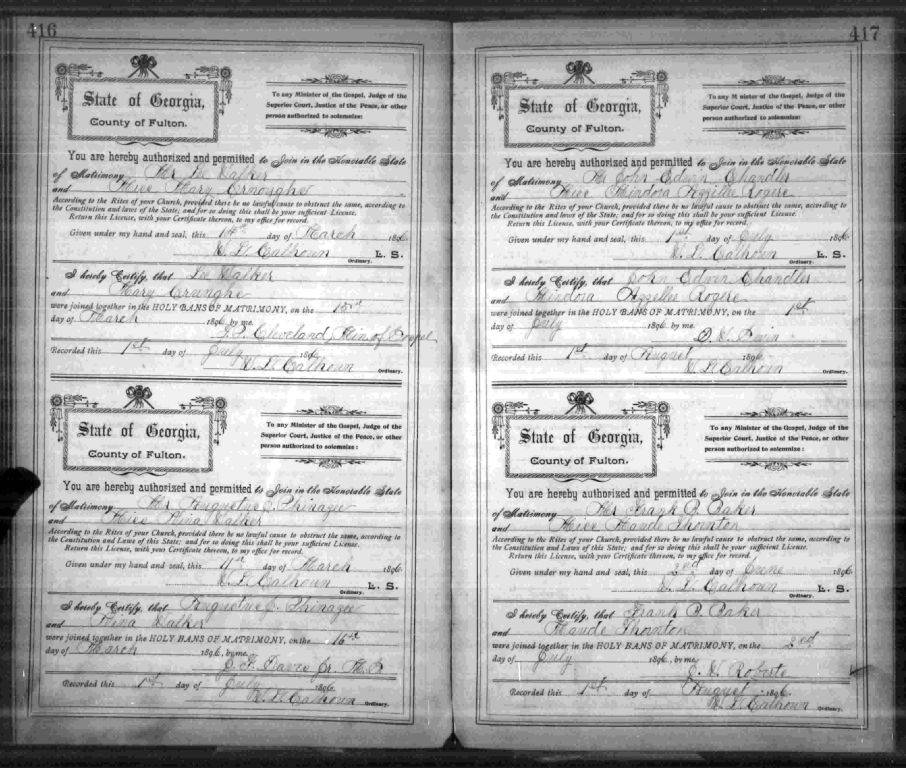 416
State of Georgia,
County of Fulton.
To any Minister of the Gospel, Judge of the
Superior Court, Justice of the Peace, or other
person authorized to solemnize:
You are hereby authorized and permitted to Join in the Honorable State
of Matrimony Mr Lee Walker
and Miss Mary
According to the Rites of your Church, provided there be no lawful cause to obstruct the same, according to
the Constitution and laws of the State; and for so doing this shall be your sufficient License.
Return this License, with your Certificate thereon, to my office for record.
Given under my hand and seal, this 14th day of March 1896
W. L. Calhoun L. S.
Ordinary.
I hereby Certify, that Lee Walker
and Mary
were joined together in the HOLY BANS OF MATRIMONY, on the 15th
day of March 1896 by me.
Cleveland, Min of Gospel
Recorded this 1st day of July 1896
W. L. Calhoun
Ordinary.
State of Georgia,
County of Fulton.
To any Minister of the Gospel, Judge of the
Superior Court, Justice of the Peace, or other
person authorized to solemnize:
You are hereby authorized and permitted to Join in the Honorable State
of Matrimony Mr Augustus
and Miss Nina Walker
According to the Rites of your Church, provided there be no lawful cause to obstruct the same, according to
the Constitution and Laws of this State; and for so doing this shall be your sufficient License.
Return this License, with your Certificate thereon, to my office for record.
Given under my hand and seal, this 11th day of March 1896
W. L. Calhoun L. S.
Ordinary.
I hereby Certify, that Augustus
and Nina Walker
were joined together in the HOLY BANS OF MATRIMONY, on the 16th
day of March 1896, by me.
Davis Jr.
Recorded this 1st day of July 1896
W. L. Calhoun
Ordinary.
417
State of Georgia,
County of Fulton.
To any Minister of the Gospel, Judge of the
Superior Court, Justice of the Peace, or other
person authorized to solemnize:
You are hereby authorized and permitted to Join in the Honorable State
of Matrimony Mr John Edwin Chandler
and Miss Mindora Rogers
According to the Rites of your Church, provided there be no lawful cause to obstruct the same, according to
the Constitution and laws of the State; and for so doing this shall be your sufficient License.
Return this License, with your Certificate thereon, to my office for record.
Given under my hand and seal, this 1st day of July 1896
W. L. Calhoun L. S.
Ordinary.
I hereby Certify, that John Edwin Chandler
and Mindora Rogers
were joined together in the HOLY BANS OF MATRIMONY, on the 1st
day of July 1896 by me.
Recorded this 1st day of August 1896
W. L. Calhoun
Ordinary.
State of Georgia,
County of Fulton.
To any Minister of the Gospel, Judge of the
Superior Court, Justice of the Peace, or other
person authorized to solemnize:
You are hereby authorized and permitted to Join in the Honorable State
of Matrimony Mr Frank B. Baker
and Miss Maude Thornton
According to the Rites of your Church, provided there be no lawful cause to obstruct the same, according to
the Constitution and Laws of this State; and for so doing this shall be your sufficient License.
Return this License, with your Certificate thereon, to my office for record.
Given under my hand and seal, this 2nd day of June 1896
W. L. Calhoun L. S.
Ordinary.
I hereby Certify, that Frank B. Baker
and Maude Thornton
were joined together in the HOLY BANS OF MATRIMONY, on the 2nd
day of July 1896, by me
J. W. Roberts
Recorded this 1st day of August 1896
W. L. Calhoun
Ordinary.